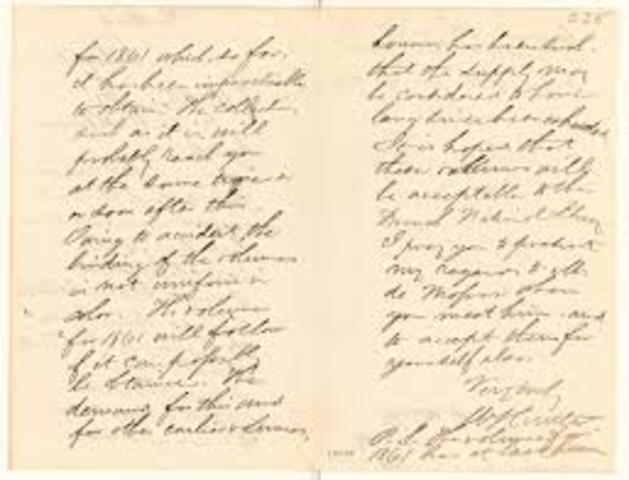 for 1861 which so far
it has been impracticable
to obtain. The collection
such as it is will
probably reach you
at the same time or
soon after this.
Owing to accident, the
binding of the volumes
is not uniform in
color. The volume
for 1861 will follow
if it can possibly
be obtained. The
demand for this and
for other earlier volumes,
225
however has been such
that the supply may
be considered to have
long since been exhausted
It is hoped that
these volumes will
be acceptable to the
National Library
I pray you to present
my regards to
de when
you meet him and
to accept them for
yourself also.
Very truly
P.S. The volume
1861 has at last been